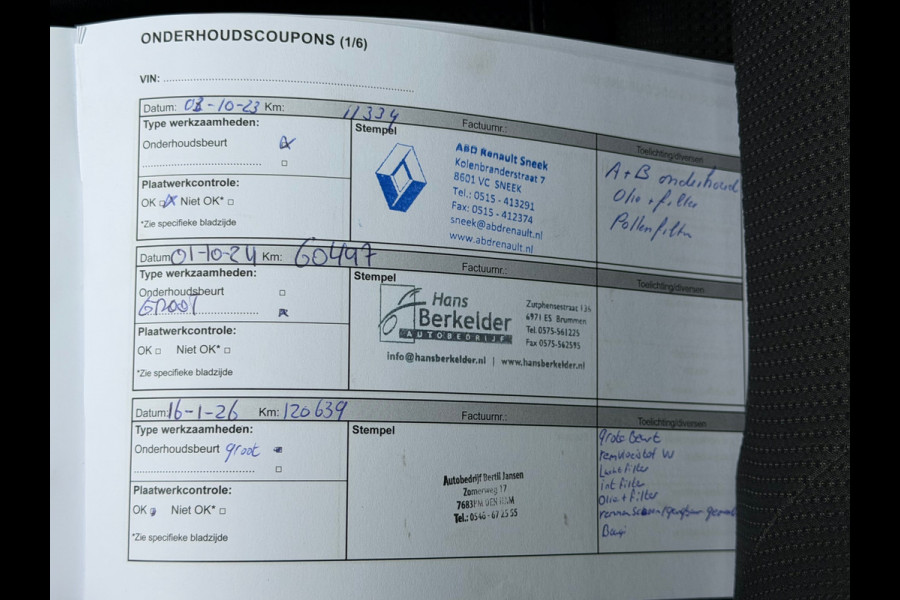 ONDERHOUDSCOUPONS (1/6)
VIN:
Datum: 03-10-23 Km: 11334
Factuurnr.:
Type werkzaamheden:
Stempel
Toelichting/diversen
Onderhoudsbeurt
ABD Renault Sneek
Kolenbranderstraat 7
8601 VC SNEEK
Tel.: 0515 - 413291
Fax: 0515 - 412374
sneek@abdrenault.nl
www.abdrenault.nl
A+B onderhoud
Olie + filter
Pollenfilter
Plaatwerkcontrole:
OK Niet OK*
*Zie specifieke bladzijde
Datum: 01-10-24 Km: 60497
Factuurnr.:
Type werkzaamheden:
Stempel
Toelichting/diversen
Onderhoudsbeurt
GROOT
Hans
Berkelder
AUTOBEDRIJF
Zutphensestraat 136
6971 ES Brummen
Tel. 0575-561225
Fax 0575-562595
info@hansberkelder.nl | www.hansberkelder.nl
Plaatwerkcontrole:
OK Niet OK*
*Zie specifieke bladzijde
Datum: 16-1-26 Km: 120639
Factuurnr.:
Type werkzaamheden:
Stempel
Toelichting/diversen
Onderhoudsbeurt groot
Autobedrijf Bertil Jansen
Zomerweg 17
7683 DEN HAM
Tel.: 0546 - 67 25 55
grote beurt
remvloeistof W
Luchtfilter
Intfilter
Olie + filter
Plaatwerkcontrole:
OK Niet OK*
*Zie specifieke bladzijde